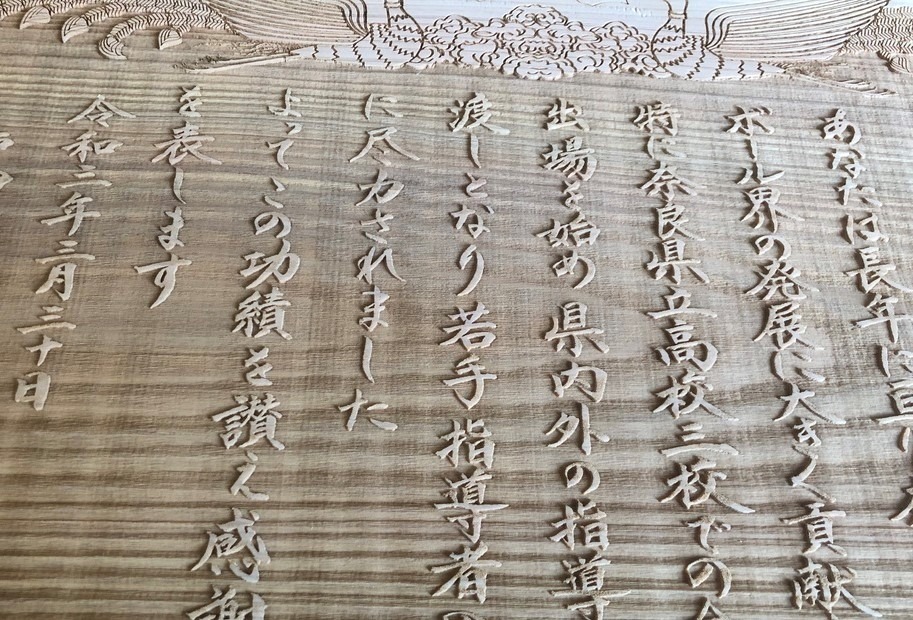 あなたは長年に亘り
ボール界の発展に大きく貢献
特に奈良県立高校三校での
出場を始め県内外の指導
渡しとなり若手指導者の
に尽力されました
よってこの功績を讃え感謝
を表します
令和二年三月三十日